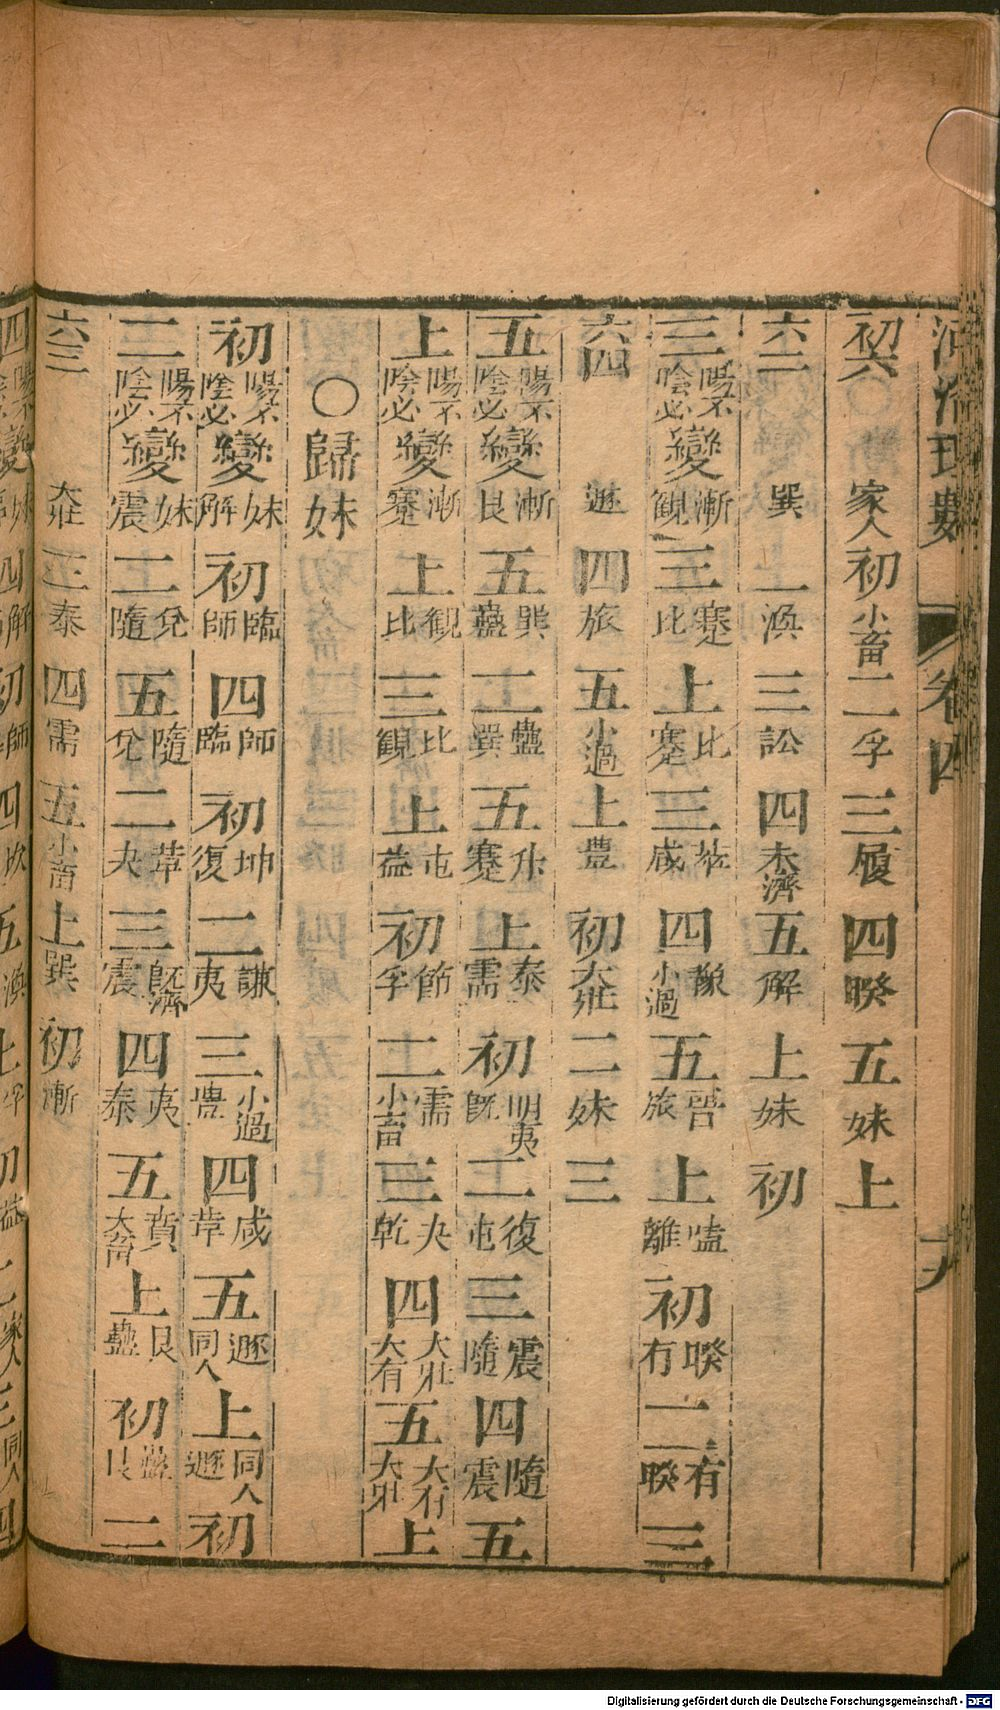 初六 家人 初 小畜 二 孚 三 履 四 睽 五 妹 上
六二 巽 二 渙 三 訟 四 未濟 五 解 上 妹 初
三 陽不陰必 變 漸觀 三 蹇比 上 比蹇 三 萃咸 四 豫小過 五 晉旅 上 嗑離 初 睽有 二 有睽 三
六四 遯 四 旅 五 小過 上 豊 初 大壯 二 妹 三
五 陽不陰必 變 漸艮 五 巽蠱 二 蠱巽 五 升蹇 上 泰需 初 明夷既 二 復屯 三 震隨 四 隨震 五
上 陽不陰必 變 漸蹇 上 觀比 三 比觀 上 屯益 初 節孚 二 需小畜 三 夬乾 四 大壯大有 五 大有大壯 上
○歸妹
初 陽不陰必 變 妹解 初 臨師 四 師臨 初 坤復 二 謙夷 三 小過豊 四 咸革 五 遯同人 上 同人遯 初
二 陽不陰必 變 妹震 二 兌隨 五 隨兌 二 革夬 三 既濟震 四 夷泰 五 賁大畜 上 艮蠱 初 蠱艮 二
六三 大壯 三 泰 四 需 五 小畜 上 巽 初 漸
卷四
Digitalisierung gefördert durch die Deutsche Forschungsgemeinschaft - DFG